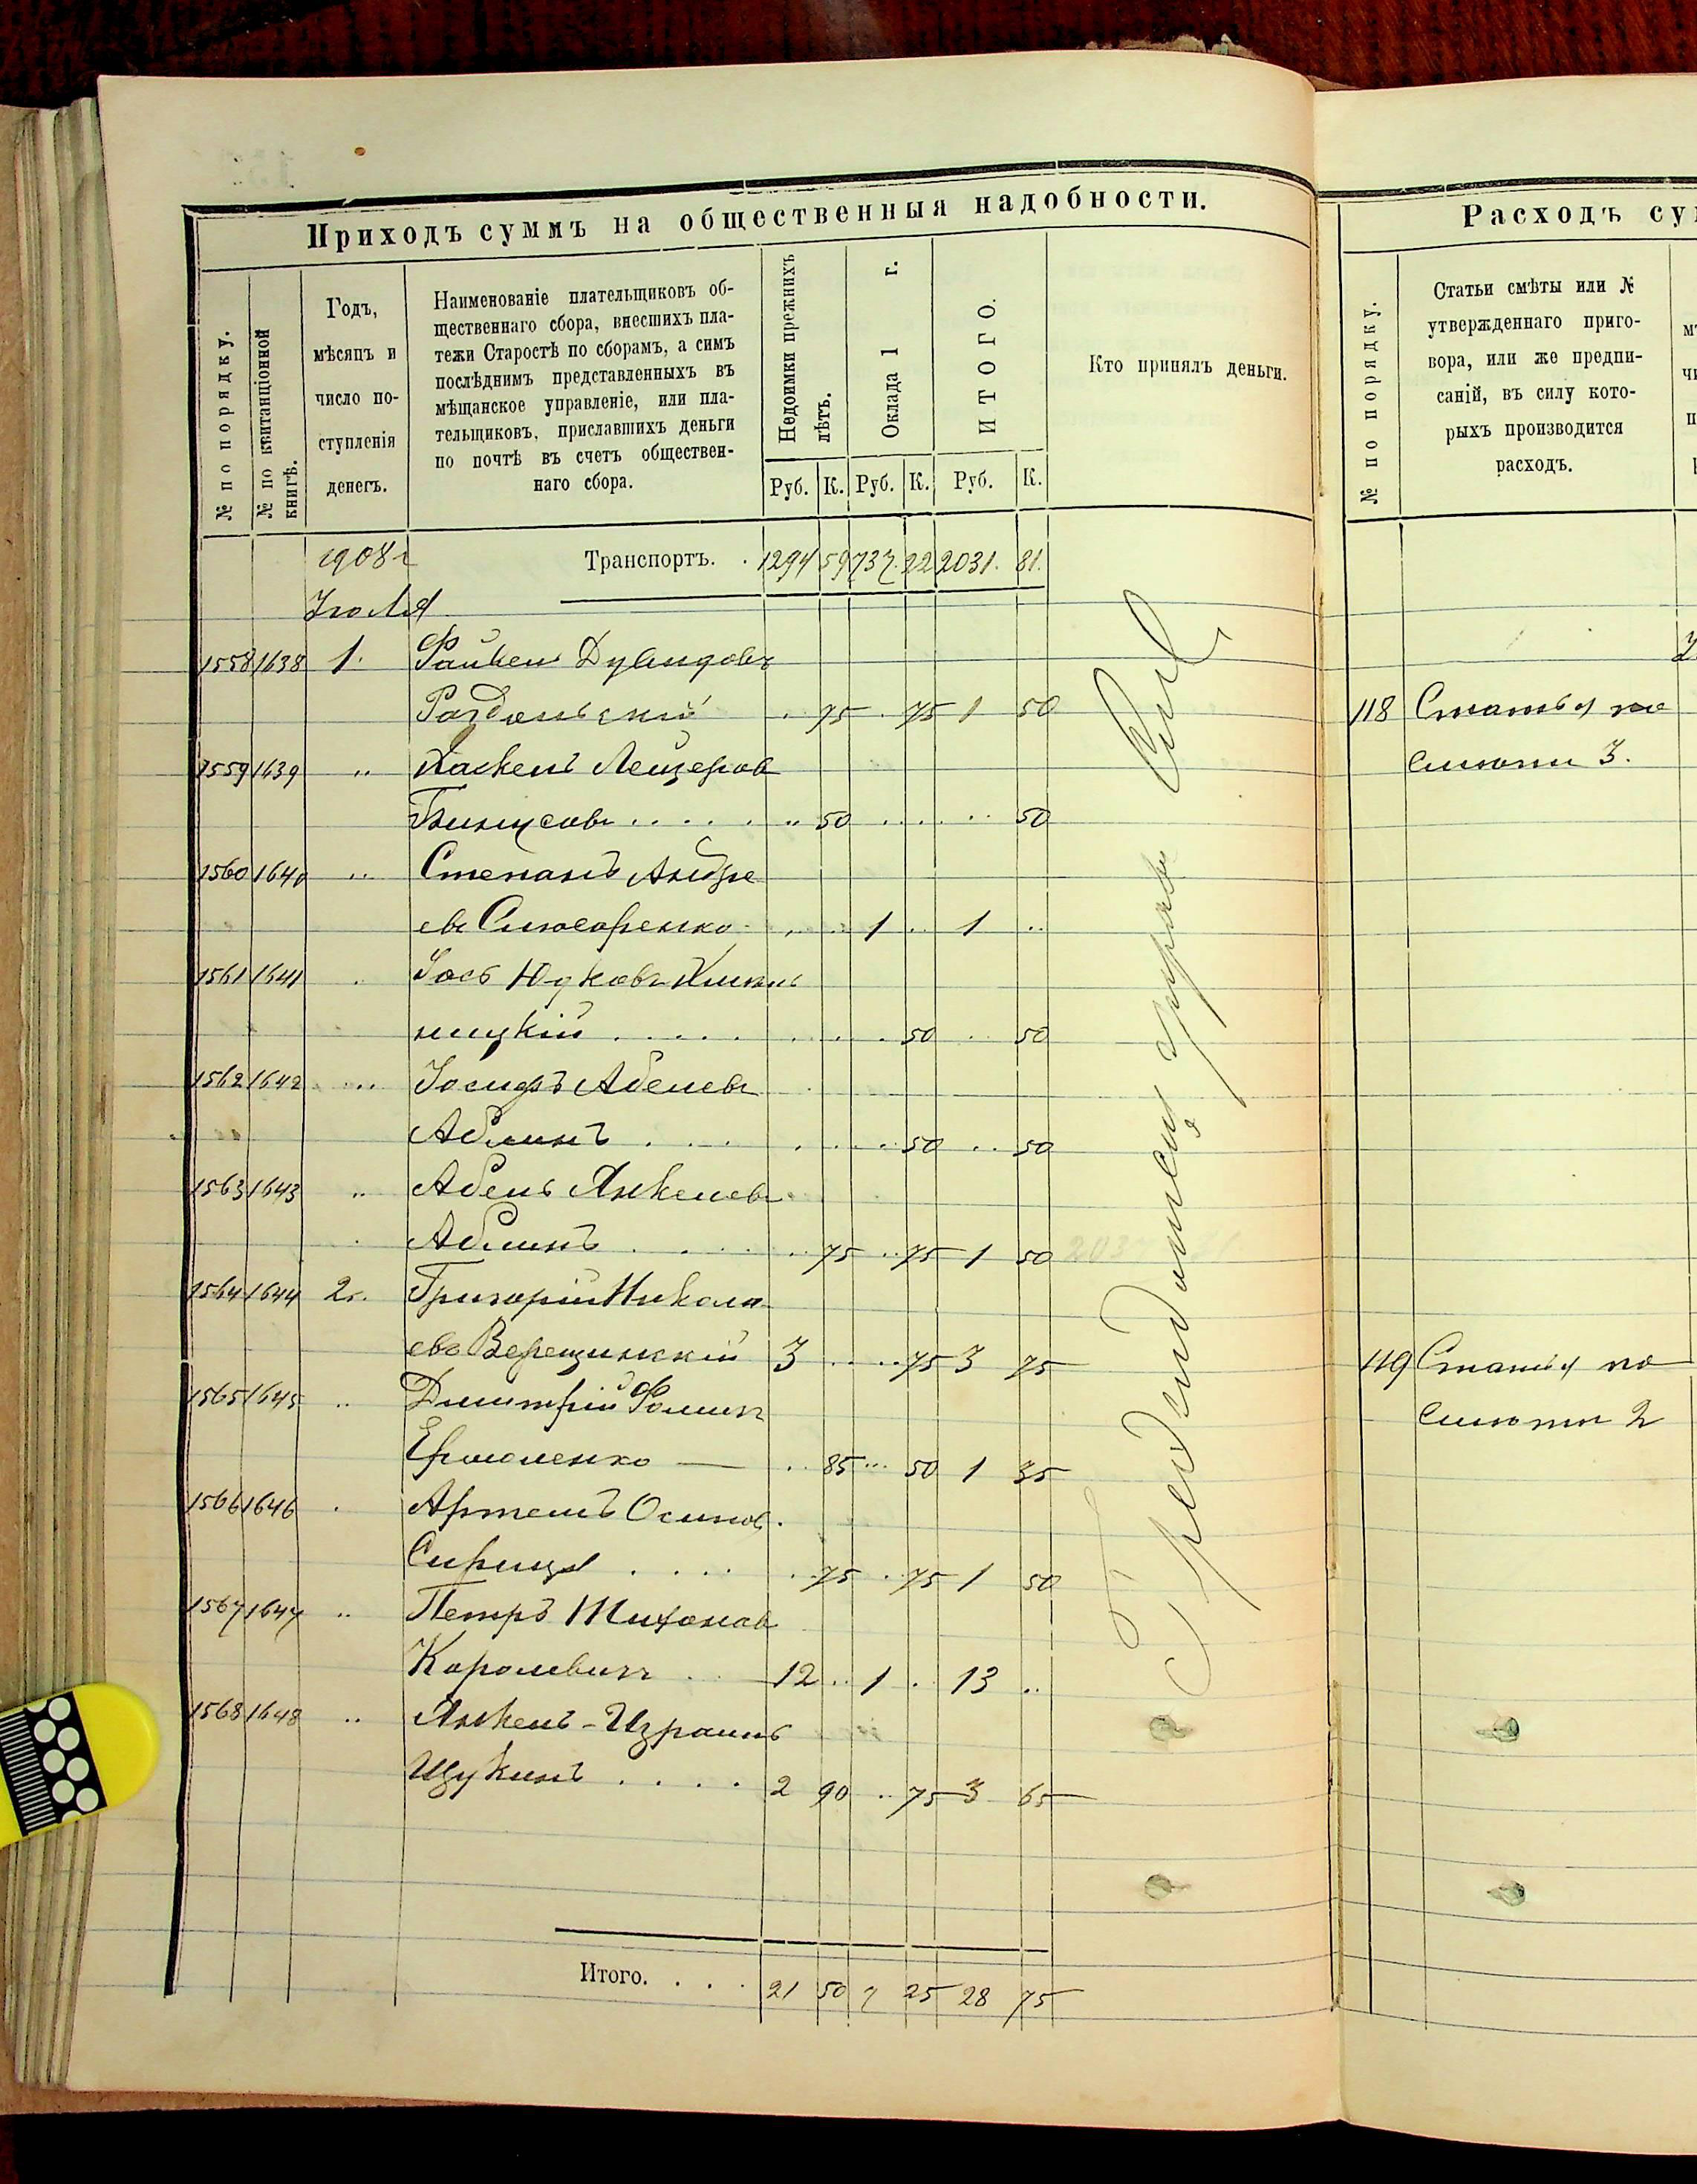 Приходъ суммъ на общественныя надобности.
№ по порядку.
№ по квитанціонной книгѣ.
Годъ,
мѣсяцъ и
число по-
ступленія
денегъ.
Наименованіе плательщиковъ об-
щественнаго сбора, внесшихъ пла-
тежи Старостѣ по сборамъ, а симъ
послѣднимъ представленныхъ въ
мѣщанское управленіе, или пла-
тельщиковъ, приславшихъ деньги
по почтѣ въ счетъ обществен-
наго сбора.
Недоимки прежнихъ
лѣтъ.
Оклада 1 г.
ИТОГО.
Кто принялъ деньги.
Руб. К. Руб. К. Руб. К.
1908 г Транспортъ. . 1294 59 737. 22 2031. 81.
Іюля
1558 1638 1. Файвель
. 75 . 75 1 50
1559 1639 " Хаскель Лейзеров
" 50 . . . . 50
1560 1640 " Степанъ Андре
евъ Слюсаренко 1 . 1 ..
1561 1641 . Іось Юдковъ
ницкій . . . . . 50 . . 50
1562 1642 " Іосифъ Абелевъ
Аблинъ . . . . . 50 . . 50
1563 1643 " Абель Янкелевъ
Аблинъ . . . . . 75 . . 75 1 50
1564 1644 2. Григорій Никола
евъ Верещинскій 3 . . . . 75 3 75
1565 1645 " Димитрій Фоминъ
Ермоленко — . 85 ... 50 1 35
1566 1646 . Артемъ Осипов.
Сирица . . . . . 75 . 75 1 50
1567 1647 " Петръ Тихонов
Королевичъ . . 12 .. 1 . 13 ..
1568 1648 " Янкель-Израиль
Щукинъ . . . . 2 90 . 75 3 65
Итого. . . . 21 50 7 25 28 75
Расходъ су
№ по порядку.
Статьи смѣты или №
утвержденнаго приго-
вора, или же предпи-
саній, въ силу кото-
рыхъ производится
расходъ.
118 Статья по
смѣты 3.
119 Статья по
смѣты 2